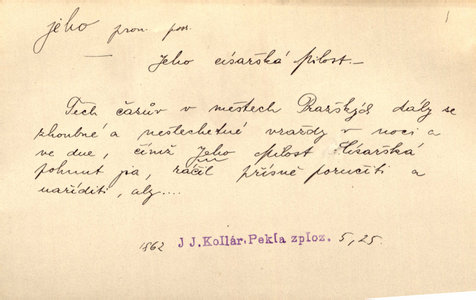 jeho pron. pos. 1
Jeho císařská Milost. —
Těch časův v městech Pražských dály se
zhoubné a nešlechetné vraždy v noci a
ve dne, čímž Jeho Milost Císařská
pohnut jsa, ráčil přísně poručiti a
naříditi, aby....
1862 J J. Kollár. Pekla zploz. 5, 25.